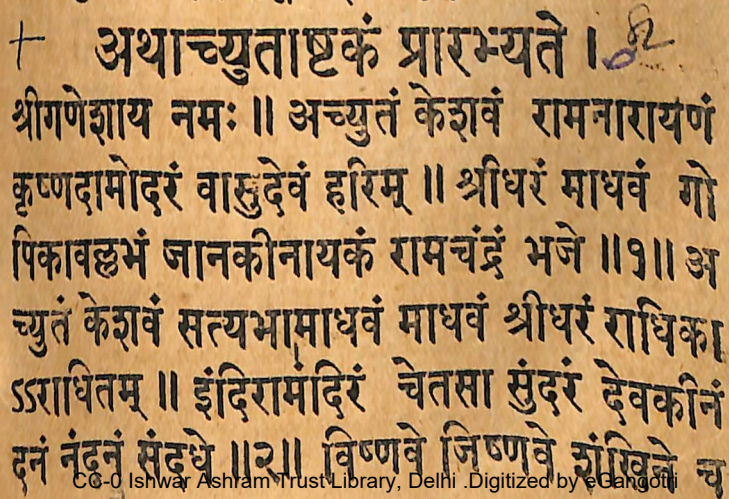 अथाच्युताष्टकं प्रारभ्यते ।
श्रीगणेशाय नमः ॥ अच्युतं केशवं रामनारायणं
कृष्णदामोदरं वासुदेवं हरिम् ॥ श्रीधरं माधवं गो
पिकावल्लभं जानकीनायकं रामचंद्रं भजे ॥१॥ अ
च्युतं केशवं सत्यभामाधवं माधवं श्रीधरं राधिका
ऽऽराधितम् ॥ इंदिरामंदिरं चेतसा सुंदरं देवकीनं
दनं नंदनं संदधे ॥२॥ विष्णवे जिष्णवे शंखिने च
CC-0 Ishwar Ashram Trust Library, Delhi .Digitized by eGangotri